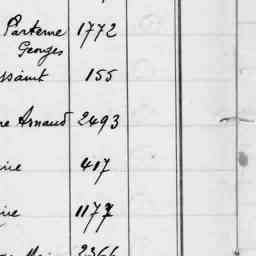 Parterne 1772
Georges
ssaint 155
re Arnaud 2493
ire 417
ire 1177
2366